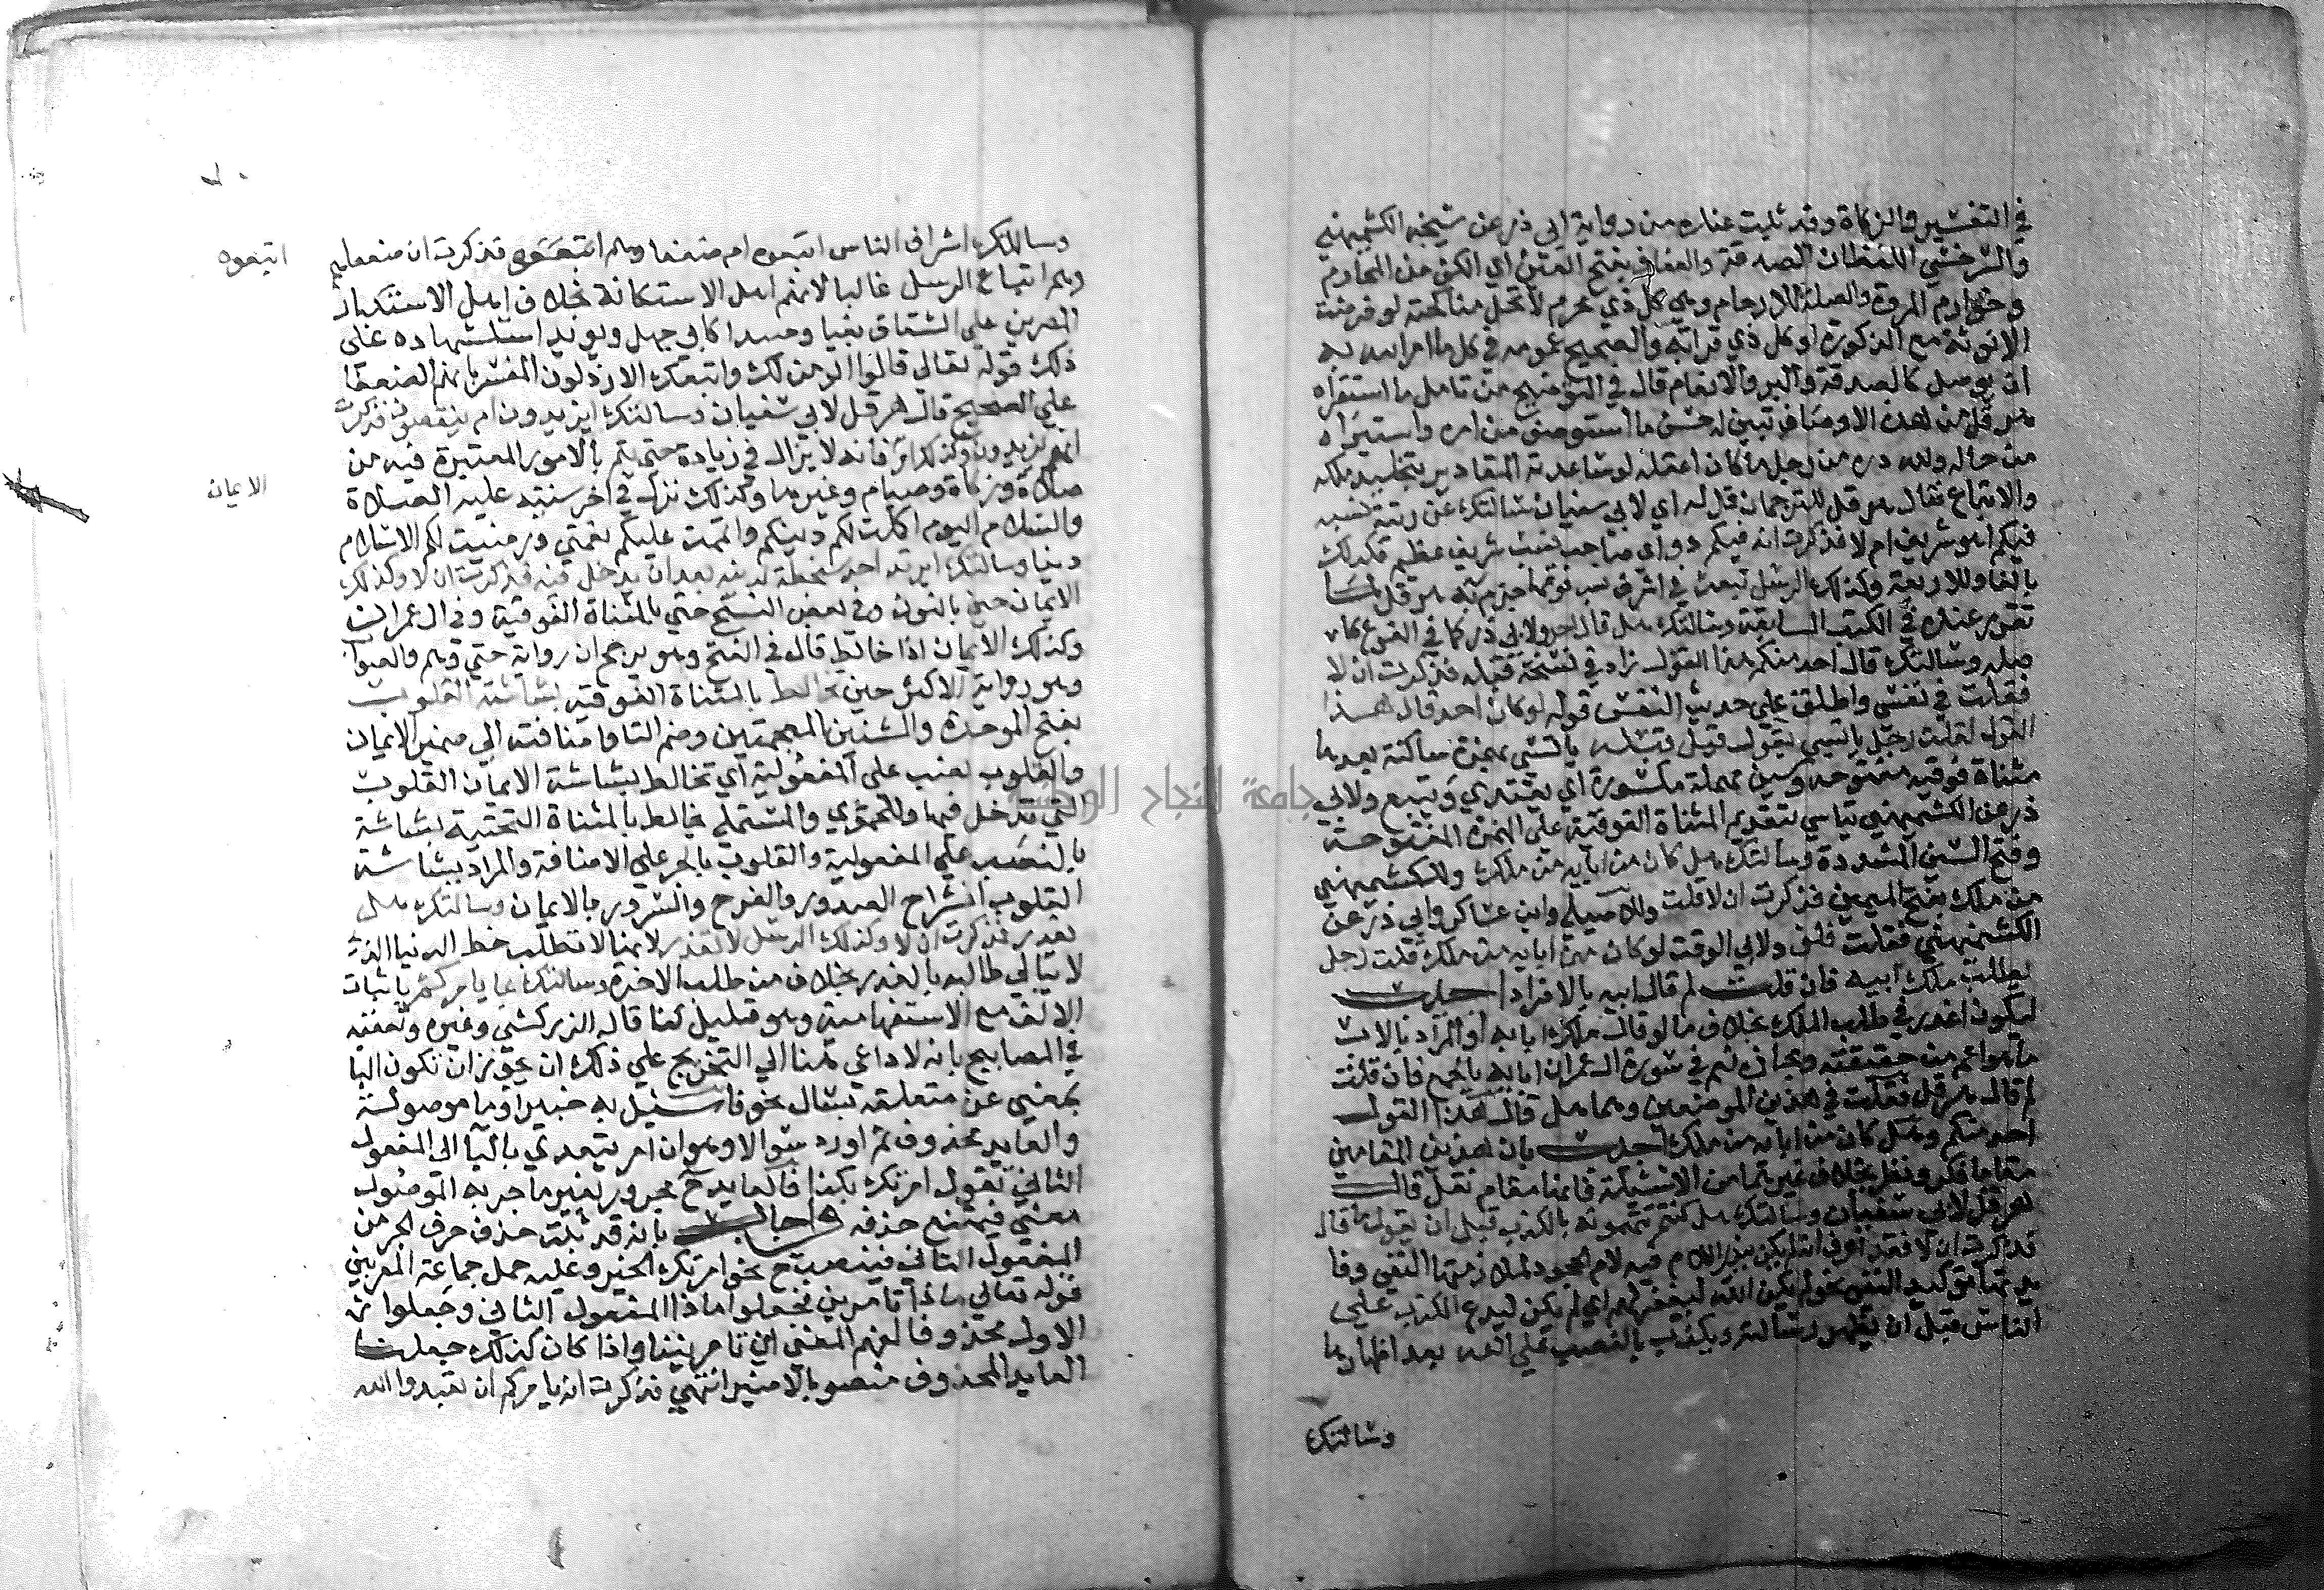 في التفسير والزكاة وقد ثبتت عنده من رواية ابي ذر عن شيخه الكشميهني
والسرخسي اللفظان الصدقة والعفاف بفتح العين اي الكف عن المحارم
وخوارم المروة والصلة للارحام وهي كل ذي محرم لا تحل مناكحته لو فرضت
الانوثة مع الذكورة او كل ذي قرابة والصحيح عمومه في كل ما امر الله به
ان يوصل كالصدقة والبر والانعام قال في التوضيح من تامل ما استقراه
هرقل من هذه الاوصاف تبين له حسن ما استوصف من امره واستبراه
من حاله ولله دره من رجل ما كان اعقله لو ساعدته المقادير بتخليد ملكه
والاتباع فقال هرقل للترجمان قل له اي لابي سفيان سالتك عن رتبة نسبه
فيكم اهو شريف ام لا فذكرت انه فيكم ذو اي صاحب نسب شريف عظيم فكذلك
بالفا وللاربعة وكذلك الرسل تبعث في اشرف نسب قومها جزم به هرقل لما
تقرر عنده في الكتب السابقة وسالتك هل قال احد ولابي ذر كما في الفرع كا
صله وسالتك قال احد منكم هذا القول زاد في نسخة قبله فذكرت ان لا
فقلت في نفسي واطلق على حديث النفس قوله لو كان احد قال هذا
القول لقلت رجل ياتسي بقول قيل قبله ياتسي بهمزة ساكنة بعدها
مثناة فوقيه مفتوحه وسين مهملة مكسورة اي يقتدي ويتبع ولابي
ذر عن الكشميهني يتاسى بتقديم المثناة الفوقية على الهمزة المفتوحة
وفتح السين المشددة وسالتك هل كان من ابايه من ملك وللكشميهني
من ملك بفتح الميمين فذكرت ان لا قلت والاصيلي وابن عساكر وابي ذر عن
الكشميهني فقلت فلو ولابي الوقت لو كان من ابايه من ملك قلت رجل
يطلب ملك ابيه فان قلت لم قال ابيه بالافراد اجيب
ليكون اعذر في طلب الملك بخلاف ما لو قال ملك ابايه او المراد بالاب
ما هو اعم من حقيقته ومجازه نعم في سورة ال عمران ابايه بالجمع فان قلت
لم قال هرقل فقلت في هذين الموضعين وهما هل قال هذا القول
احد منكم وهل كان من ابايه من ملك اجيب بان هذين المقامين
مقاما فكر ونظر بخلاف غيرهما من الاسئلة فانها مقام نقل قال
هرقل لابي سفيان وسالتك هل كنتم تتهمونه بالكذب قبل ان يقول ما قال
فذكرت ان لا فقد اعرف انه لم يكن ليذر اللام فيه لام الجحود لملازمتها النفي وفا
يدتها توكيد النفي نحو لم يكن الله ليغفر لهم اي لم يكن ليدع الكذب على
الناس قبل ان يظهر رسالته ويكذب بالنصب على الله بعد اظهارها
وسالتك
وسالتك اشراف الناس اتبعوه ام ضعفاوهم فذكرت ان ضعفاهم
اتبعوه
وهم اتباع الرسل غالبا لانهم اهل الاستكانة بخلاف اهل الاستكبار
المصرين على الشقاق بغيا وحسدا كابي جهل ويويد استشهاده على
ذلك قوله تعالى قالوا انومن لك واتبعك الارذلون المفسر بانهم الضعفا
على الصحيح قال هرقل لابي سفيان وسالتك ايزيدون ام ينقصون فذكرت
انهم يزيدون وكذلك امر فانه لا يزال في زيادة حتى يتم بالامور المعتبرة فيه من
الايمان
صلاة وزكاة وصيام وغيرها وكذلك نزلت في اخر سنيه عليه الصلاة
والسلام اليوم اكملت لكم دينكم واتممت عليكم نعمتي ورضيت لكم الاسلام
دينا وسالتك ايرتد احد سخطة لدينه بعد ان يدخل فيه فذكرت ان لا وكذلك
الايمان حين بالنون وفي بعض النسخ حتى بالمثناة الفوقية وفي ال عمران
وكذلك الايمان اذا خالط قال في الفتح وهو يرجح ان رواية حتى وهم والصواب
وهو رواية الاكثر حين تخالط بالمثناة الفوقيه بشاشته القلوب
بفتح الموحدة والشينين المعجمتين وضم التا واضافته الى ضمير الايمان
والقلوب نصب على المفعولية اي تخالط بشاشة الايمان القلوب
التي تدخل فيها وللحموي والمستملي يخالط بالمثناة التحتية بشاشة
بالنصب على المفعولية والقلوب بالجر على الاضافة والمراد ببشاشة
القلوب انشراح الصدور والفرح والسرور بالايمان وسالتك هل
يغدر فذكرت ان لا وكذلك الرسل لا تغدر لانها لا تطلب حظ الدنيا الذي
لا يبالي طالبه بالغدر بخلاف من طلب الاخرة وسالتك بما يامركم باثبات
الالف مع ما الاستفهامية وهو قليل كذا قاله الزركشي وغيره وتعقبه
في المصابيح بانه لا داعي هنا الى التخريج على ذلك ان يجوز ان تكون البا
بمعنى عن متعلقه بسال نحو فاسئل به خبيرا وما موصولة
والعايد محذوف ثم اورد سوالا وهو ان امر يتعدى بالبا الى المفعول
الثاني تقول امرتك بكذا فالعايد ح مجرور بغير ما جر به الموصول
معنى فيمتنع حذفه واجاب بانه قد ثبت حذف حرف الجر من
المفعول الثاني فينصب ح نحو امرتك الخير وعليه حمل جماعة المعربين
قوله تعالى ماذا تامرين فجعلوا ماذا المفعول الثاني وجعلوا
الاول محذوفا لفهم المعنى اي تامريننا واذا كان كذلك جعلنا
العايد المحذوف منصوبا لا ضير انتهى فذكرت انه يامركم ان تعبدوا الله
جامعة النجاح الوطنية